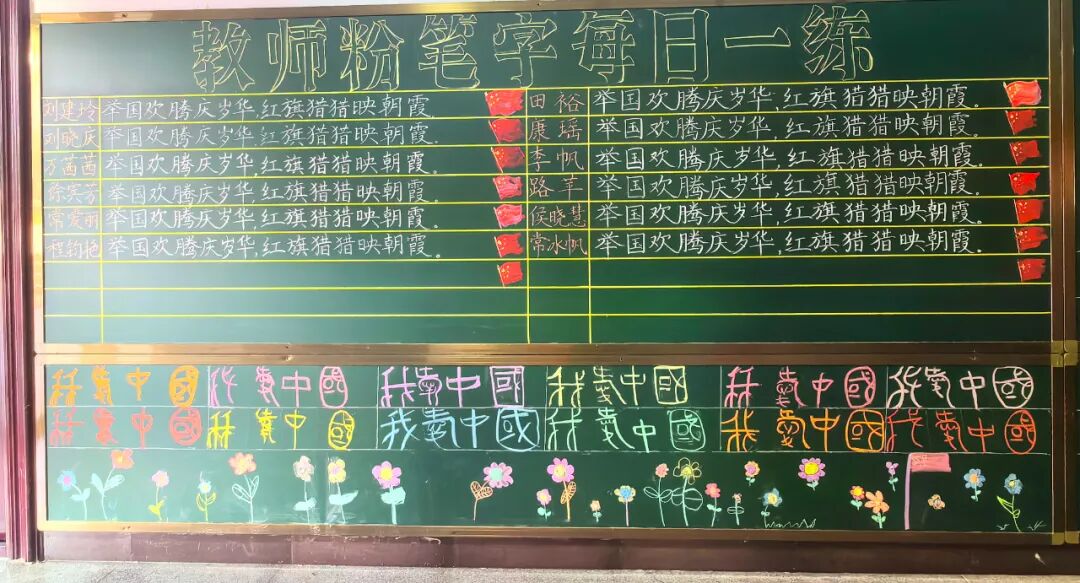 教师粉笔字每日一练
刘建坤 举国欢腾庆岁华,红旗猎猎映朝霞。
田裕 举国欢腾庆岁华,红旗猎猎映朝霞。
刘晓庆 举国欢腾庆岁华,红旗猎猎映朝霞。
康瑶 举国欢腾庆岁华,红旗猎猎映朝霞。
万茜茜 举国欢腾庆岁华,红旗猎猎映朝霞。
李帆 举国欢腾庆岁华,红旗猎猎映朝霞。
徐宾芳 举国欢腾庆岁华,红旗猎猎映朝霞。
路羊 举国欢腾庆岁华,红旗猎猎映朝霞。
常爱丽 举国欢腾庆岁华,红旗猎猎映朝霞。
侯晓慧 举国欢腾庆岁华,红旗猎猎映朝霞。
程钧艳 举国欢腾庆岁华,红旗猎猎映朝霞。
常冰帆 举国欢腾庆岁华,红旗猎猎映朝霞。
我爱中國 我爱中國 我爱中國 我爱中國 我爱中國 我爱中國
我爱中國 我爱中國 我爱中國 我爱中國 我爱中國 我爱中國